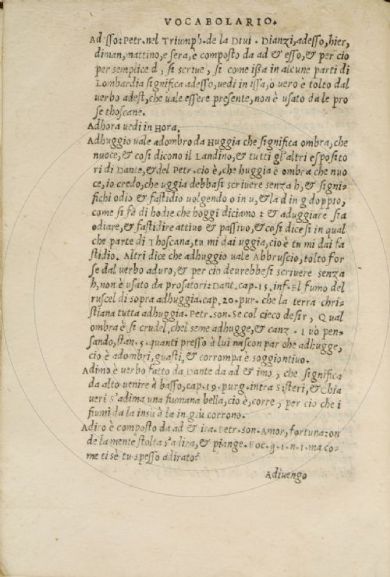 VOCABOLARIO.
Adesso: Petr. nel Triumph. de la Divi. Dianzi, adesso, hier,
diman, mattino, e sera, è composto da ad & esso, & per cio
per semplice d, si scrive, si come issa in alcune parti di
Lombardia significa adesso, vedi in issa, o vero è tolto dal
verbo adest, che vale essere presente, non è usato da le pro
se thoscane.
Adhora vedi in Hora.
Adhuggio vale adombro da Huggia che significa ombra, che
nuoce, & cosi dicono il Landino, & tutti gl'altri esposito
ri di Dante, & del Petr. cio è, che huggia è ombra che nuo
ce, io credo, che uggia debbasi scrivere senza h, & signi
fichi odio & fastidio volgendo o in u, & la d in g doppio,
come si fà di hodie che hoggi diciamo: & aduggiare sia
odiare, & fastidire attivo & passivo, & cosi dicesi in qual
che parte di Thoscana, tu mi dai uggia, cio è tu mi dai fa
stidio. Altri dice che adhuggio vale Abbruscio, tolto for
se dal verbo aduro, & per cio deurebbesi scrivere senza
h, non è usato da prosatori: Dant. cap. 15. inf. Il fumo del
ruscel di sopra adhuggia. cap. 20. pur. che la terra chri-
stiana tutta adhuggia. Petr. son. Se col cieco desir, Qual
ombra è si crudel, chel seme adhugge, & canz. I vo pen-
sando, stan. 5. quanti presso à lui nascon par che adhugge,
cio è adombri, guasti, & corrompa è soggiontivo.
Adimo è verbo fatto da Dante da ad & imo, che significa
da alto venire à basso, cap. 19. purg. intra Sisteri, & Chia
veri s'adima una fiumana bella, cio è, corre, per cio che i
fiumi da la insù à la in giù corrono.
Adiro è composto da ad & ira. Petr. son. Amor, fortuna: on
de la mente stolta s'adira, & piange. Boc. g. 1. n. 1. ma co-
me ti sè tu spesso adirato?
Adivengo